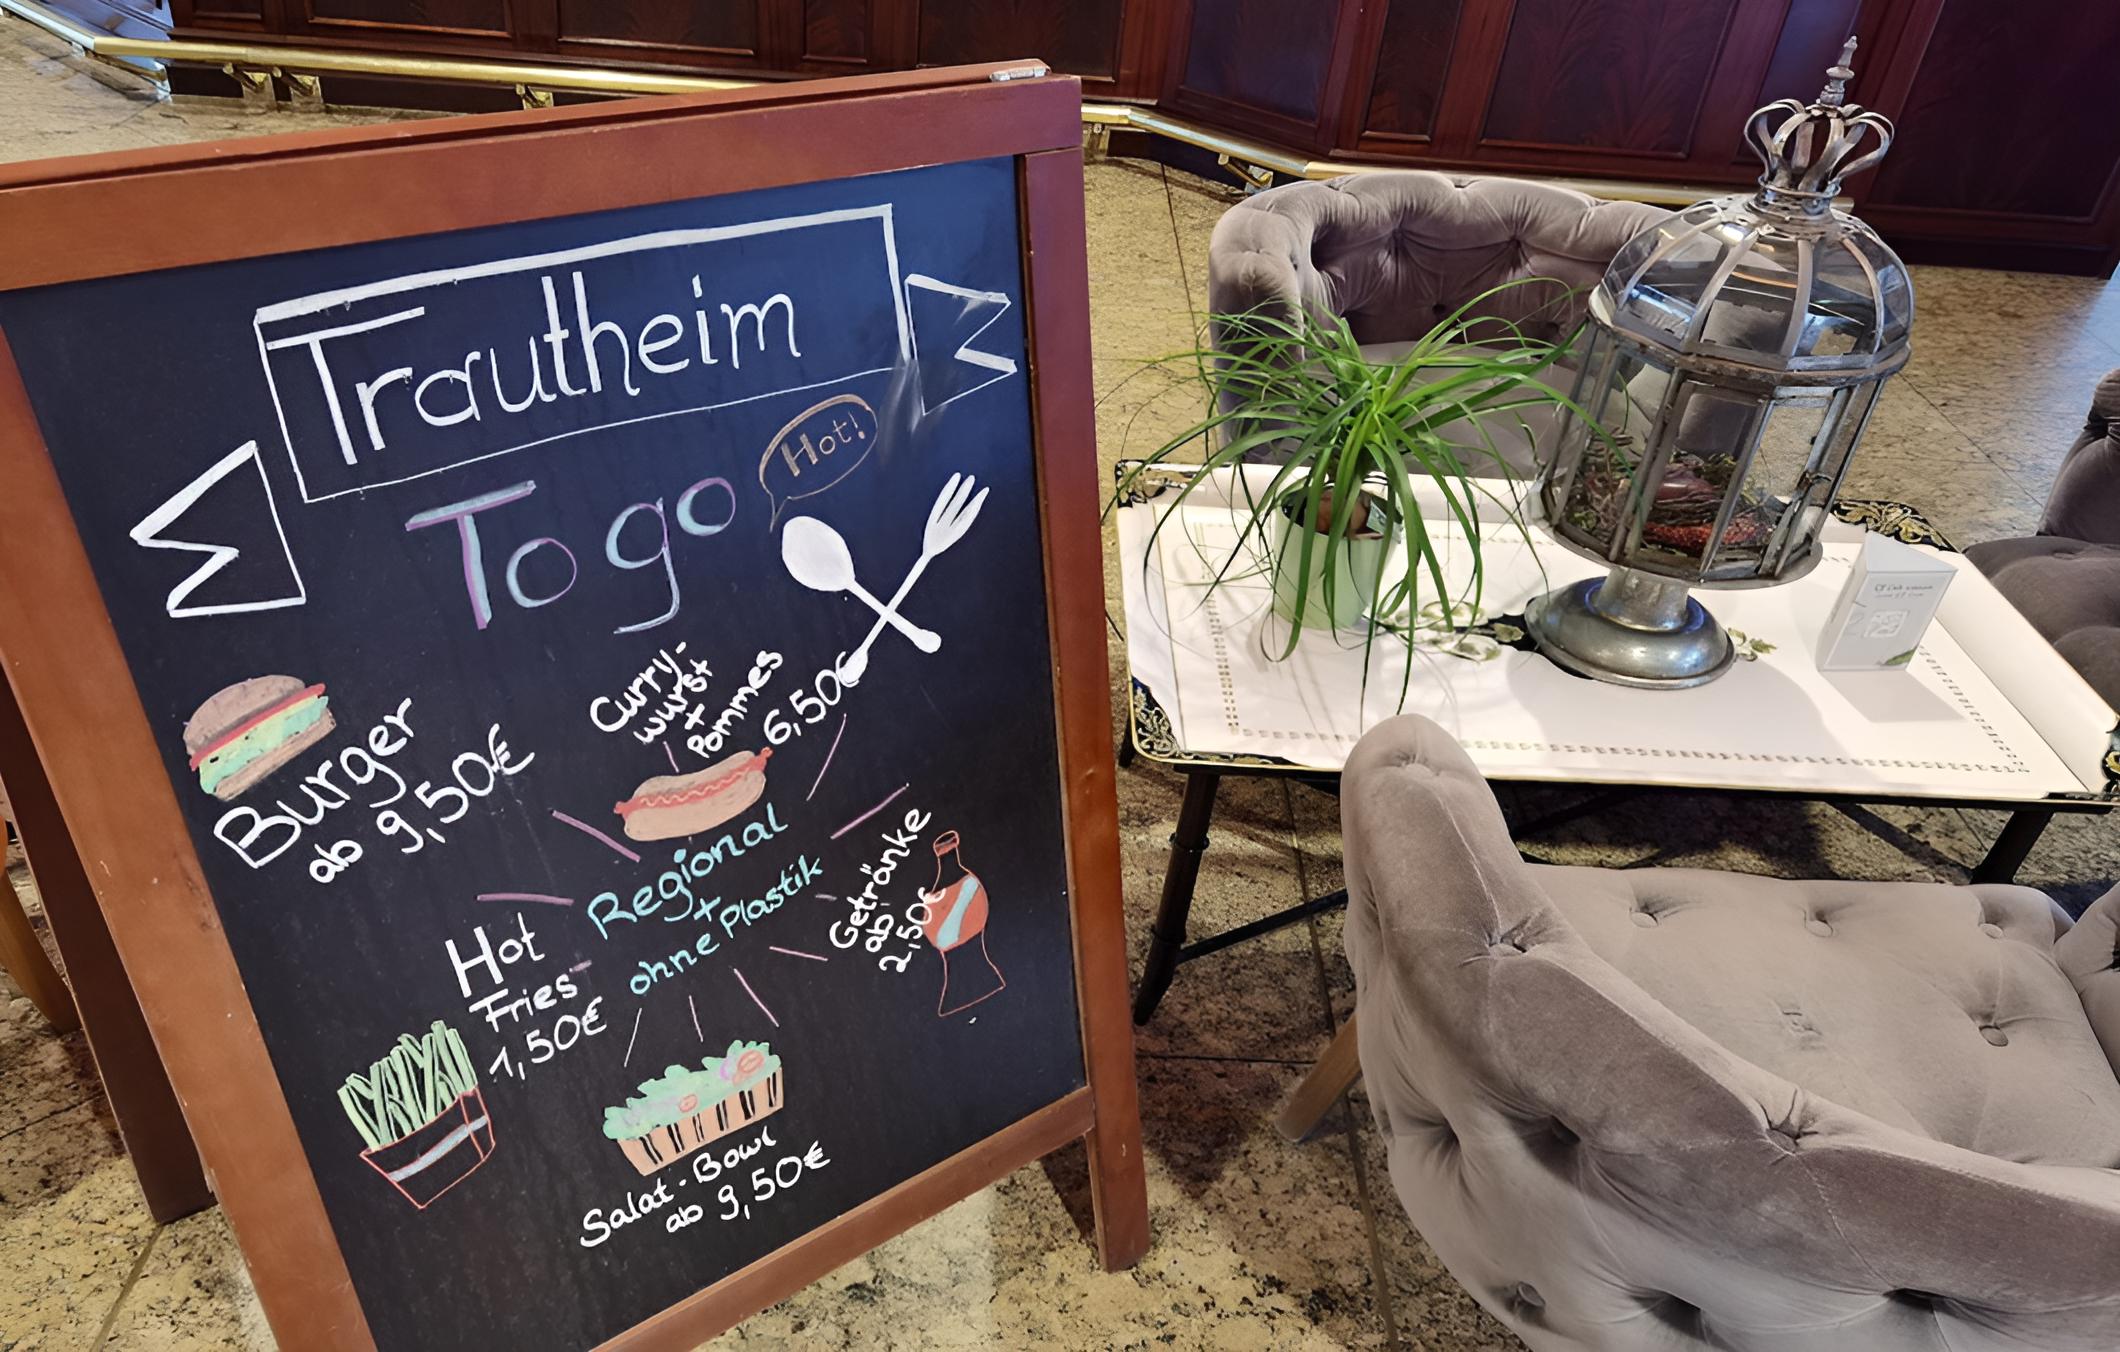 Trautheim
To go
Hot!
Curry-
wurst
+
Pommes
6,50€
Burger
ab 9,50€
Regional
+
ohne Plastik
Getränke
ab
2,50€
Hot
Fries
1,50€
Salat-Bowl
ab 9,50€